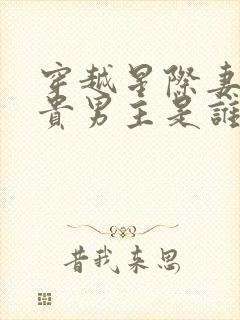 穿越星際妻
貴男主是誰
昔我来思